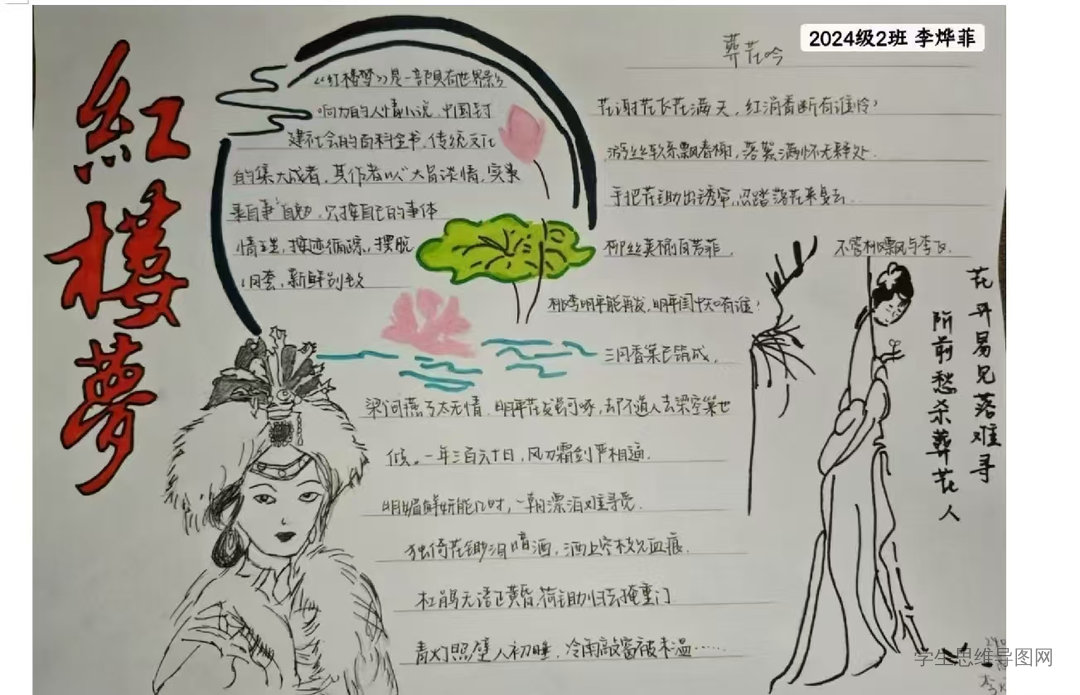 紅樓夢
2024级2班 李烨菲
《红楼梦》是一部具有世界影
响力的人情小说，中国封
建社会的百科全书，传统文化
的集大成者，其作者以"大旨谈情，实录
其事"自勉，只按自己的事体
情理，按迹循踪，摆脱
旧套，新鲜别致
葬花吟
花谢花飞花满天，红消香断有谁怜？
游丝软系飘春榭，落絮
手把花锄出绣帘，忍踏落花来复去.
柳丝榆荚自芳菲，
不管桃飘与李飞.
桃李明年能再发，明年闺中知有谁？
三月香巢已筑成，
梁间燕子太无情.明年花发虽可啄，却不道人去梁空巢也
倾.一年三百六十日，风刀霜剑严相逼.
明媚鲜妍能几时，一朝漂泊难寻觅.
独倚花锄泪暗洒，洒上空枝见血痕.
杜鹃无语正黄昏，荷锄归去掩重门
青灯照壁人初睡，冷雨敲窗被未温……
花开易见落难寻
阶前愁杀葬花人
学生思维导图网